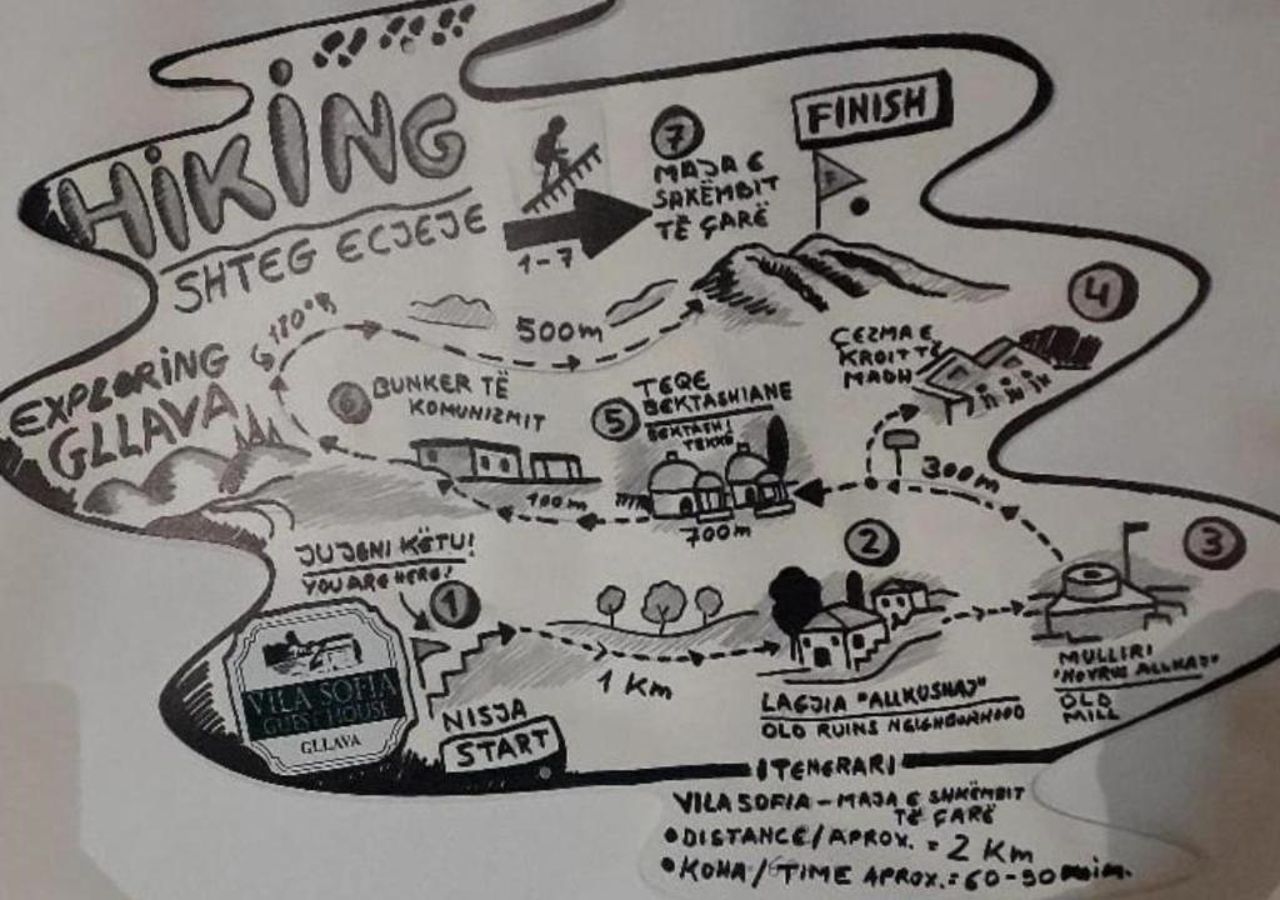 HiKiNG
SHTEG ECJEJE
1-7
7
MAJA E
SHKËMBIT
TË ÇARË
FINISH
EXPLORING
GLLAVA
180°
500m
4
ÇEZMA E
KROIT TË
MADH
6
BUNKER TË
KOMUNIZMIT
5
TEQE
BEKTASHIANE
BEKTASHI
TEKKE
300m
100m
700m
JU JENI KËTU!
YOU ARE HERE!
1
2
3
VILA SOFIA
GUEST HOUSE
GLLAVA
NISJA
START
1 Km
LAGJIA "ALLKUSHAJ"
OLD RUINS NEIGHBORHOOD
MULLIRI
OLD
MILL
ITENERARI
VILA SOFIA - MAJA E SHKËMBIT
TË ÇARË
• DISTANCE/APROX. = 2 Km
• KOHA / TIME APROX.: 60-90 min.